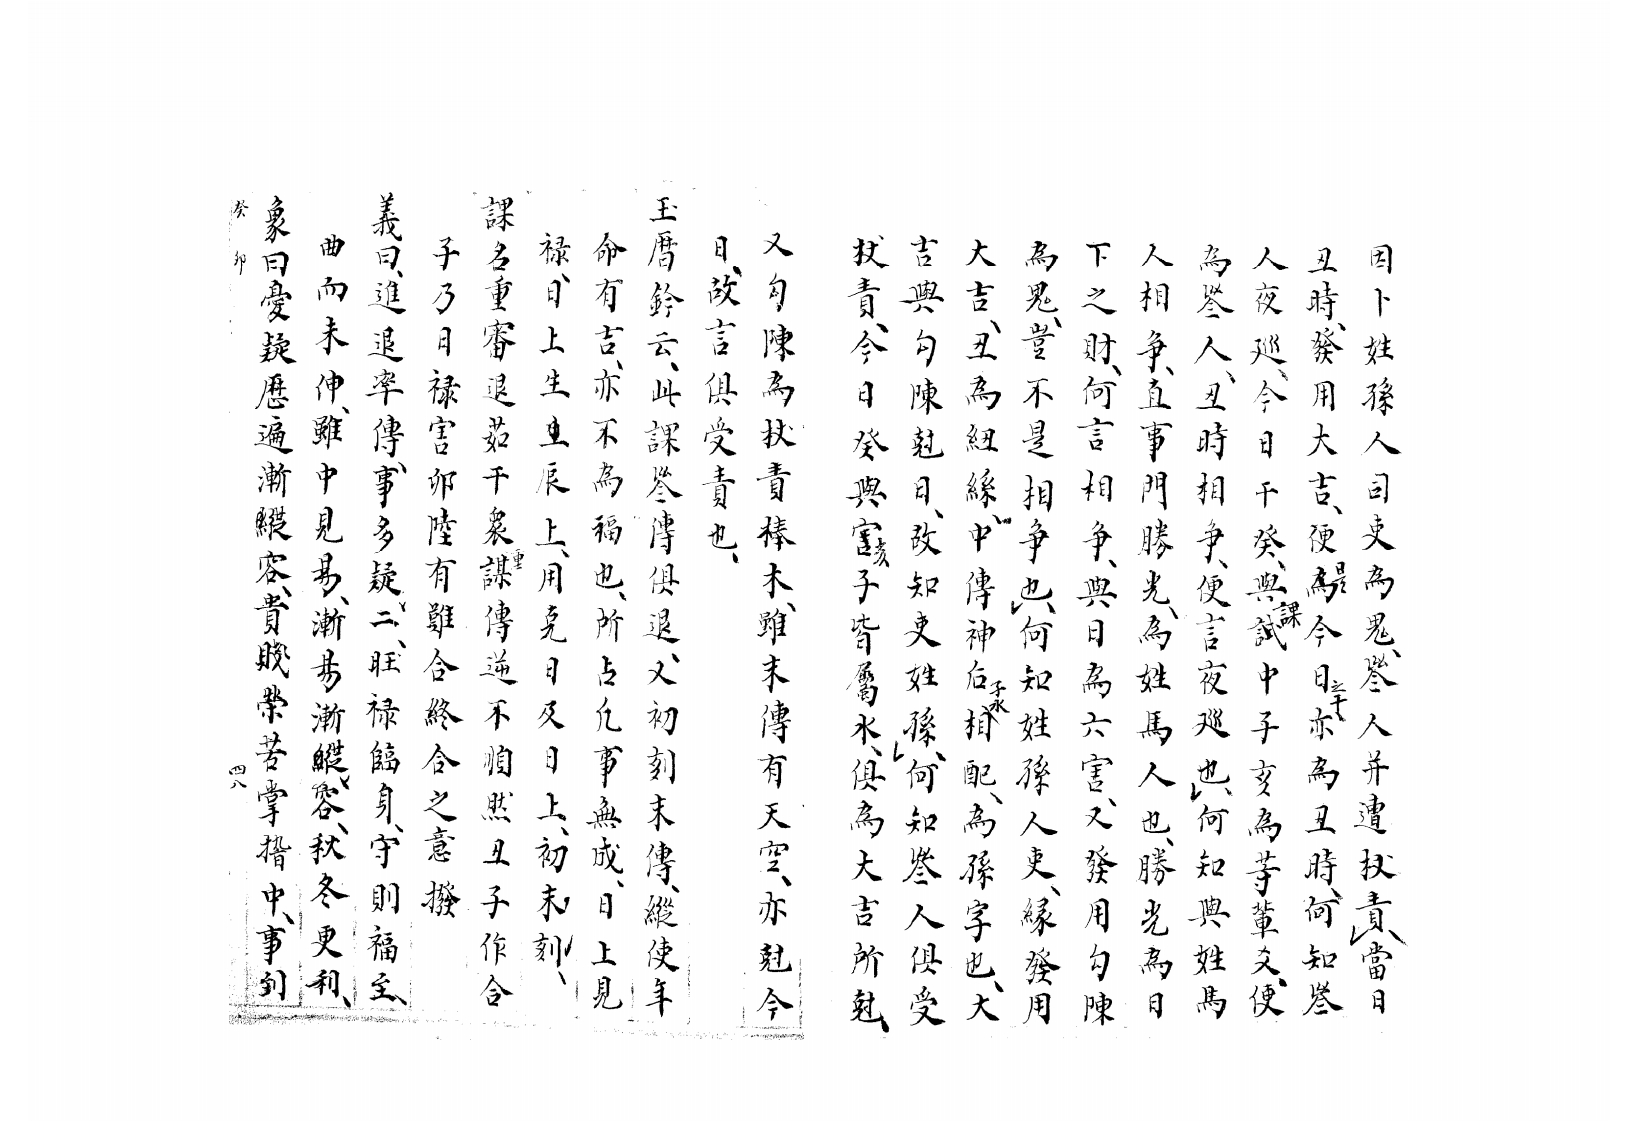 因卜姓孫人司吏為鬼、詧人并遭杖責、當日
丑時、發用大吉、便是為今日之干亦為丑時、何知詧
人夜廵、今日干癸、與課試中子亥為等輩爻、便
為詧人、丑時相争、便言夜廵也、何知與姓馬
人相争、直事門勝光、為姓馬人也、勝光為日
下之財、何言相争、與日為六害、又發用勾陳
為鬼、豈不是相争也、何知姓孫人吏、緣發用
大吉、丑為紐絲、中傳神后子水相配、為孫字也、大
吉與勾陳尅日、故知吏姓孫、何知詧人俱受
杖責、今日癸與害亥子皆屬水、俱為大吉所尅、
又勾陳為杖責棒木、雖末傳有天空、亦尅今
日、故言俱受責也、
玉曆鈐云、此課詧傳俱退、又初刻末傳、縱使年
命有吉、亦不為福也、所占凡事無成、日上見
祿、日上生辰上、用克日及日上、初末刻、
課名重審退茹干衆重謀傳逆不順然丑子作合
子乃日祿害卯陸有雖合終合之意撥
義曰、進退率傳、事多疑二、旺祿臨身、守則福至、
曲而未伸、雖中見易、漸易漸縱容、秋冬更利、
象曰憂疑歷遍漸縱容、貴賤榮苦掌握中、事到
癸卯
四八